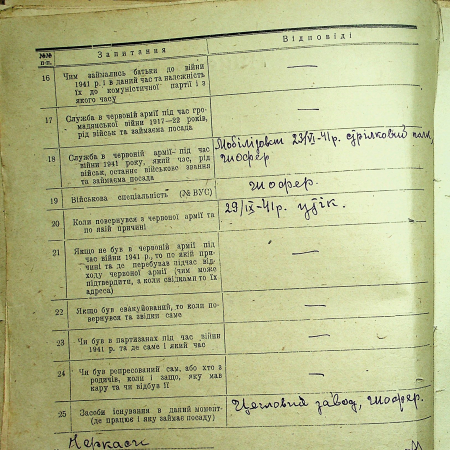 №№ п.п.
Запитання
Відповіді
16
Чим займались батьки до війни
1941 р. і в даний час та належність
їх до комуністичної партії і з
якого часу
—
17
Служба в червоній армії під час гро-
мадянської війни 1917—22 років,
рід військ та займаєма посада
—
18
Служба в червоній армії під час
війни 1941 року, який час, рід
військ, останнє військове звання
та займаєма посада
Мобілізован 23/VI-41р. стрілковий полк,
шофер
19
Військова спеціальність (№ ВУС)
шофер.
20
Коли повернувся з червоної армії та
по якій причині
29/IX-41р. утік.
21
Якщо не був в червоній армії під
час війни 1941 р., то по якій при-
чині та де перебував підчас від-
ходу червоної армії (чим може
підтвердити, а коли свідками то їх
адреса)
—
22
Якщо був евакуйований, то коли по-
вернувся та звідки саме
—
23
Чи був в партизанах під час війни
1941 р. та де саме і який час
—
24
Чи був репресований сам, або хто з
родичів, коли і защо, яку мав
кару та чи відбув її
—
25
Засоби існування в даний момент-
(де працює і яку займає посаду)
Цегловий завод, шофер.
Черкаси